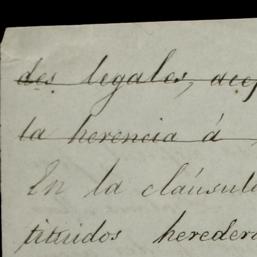 des legales, acep
la herencia á
En la cláusula
tituidos heredero